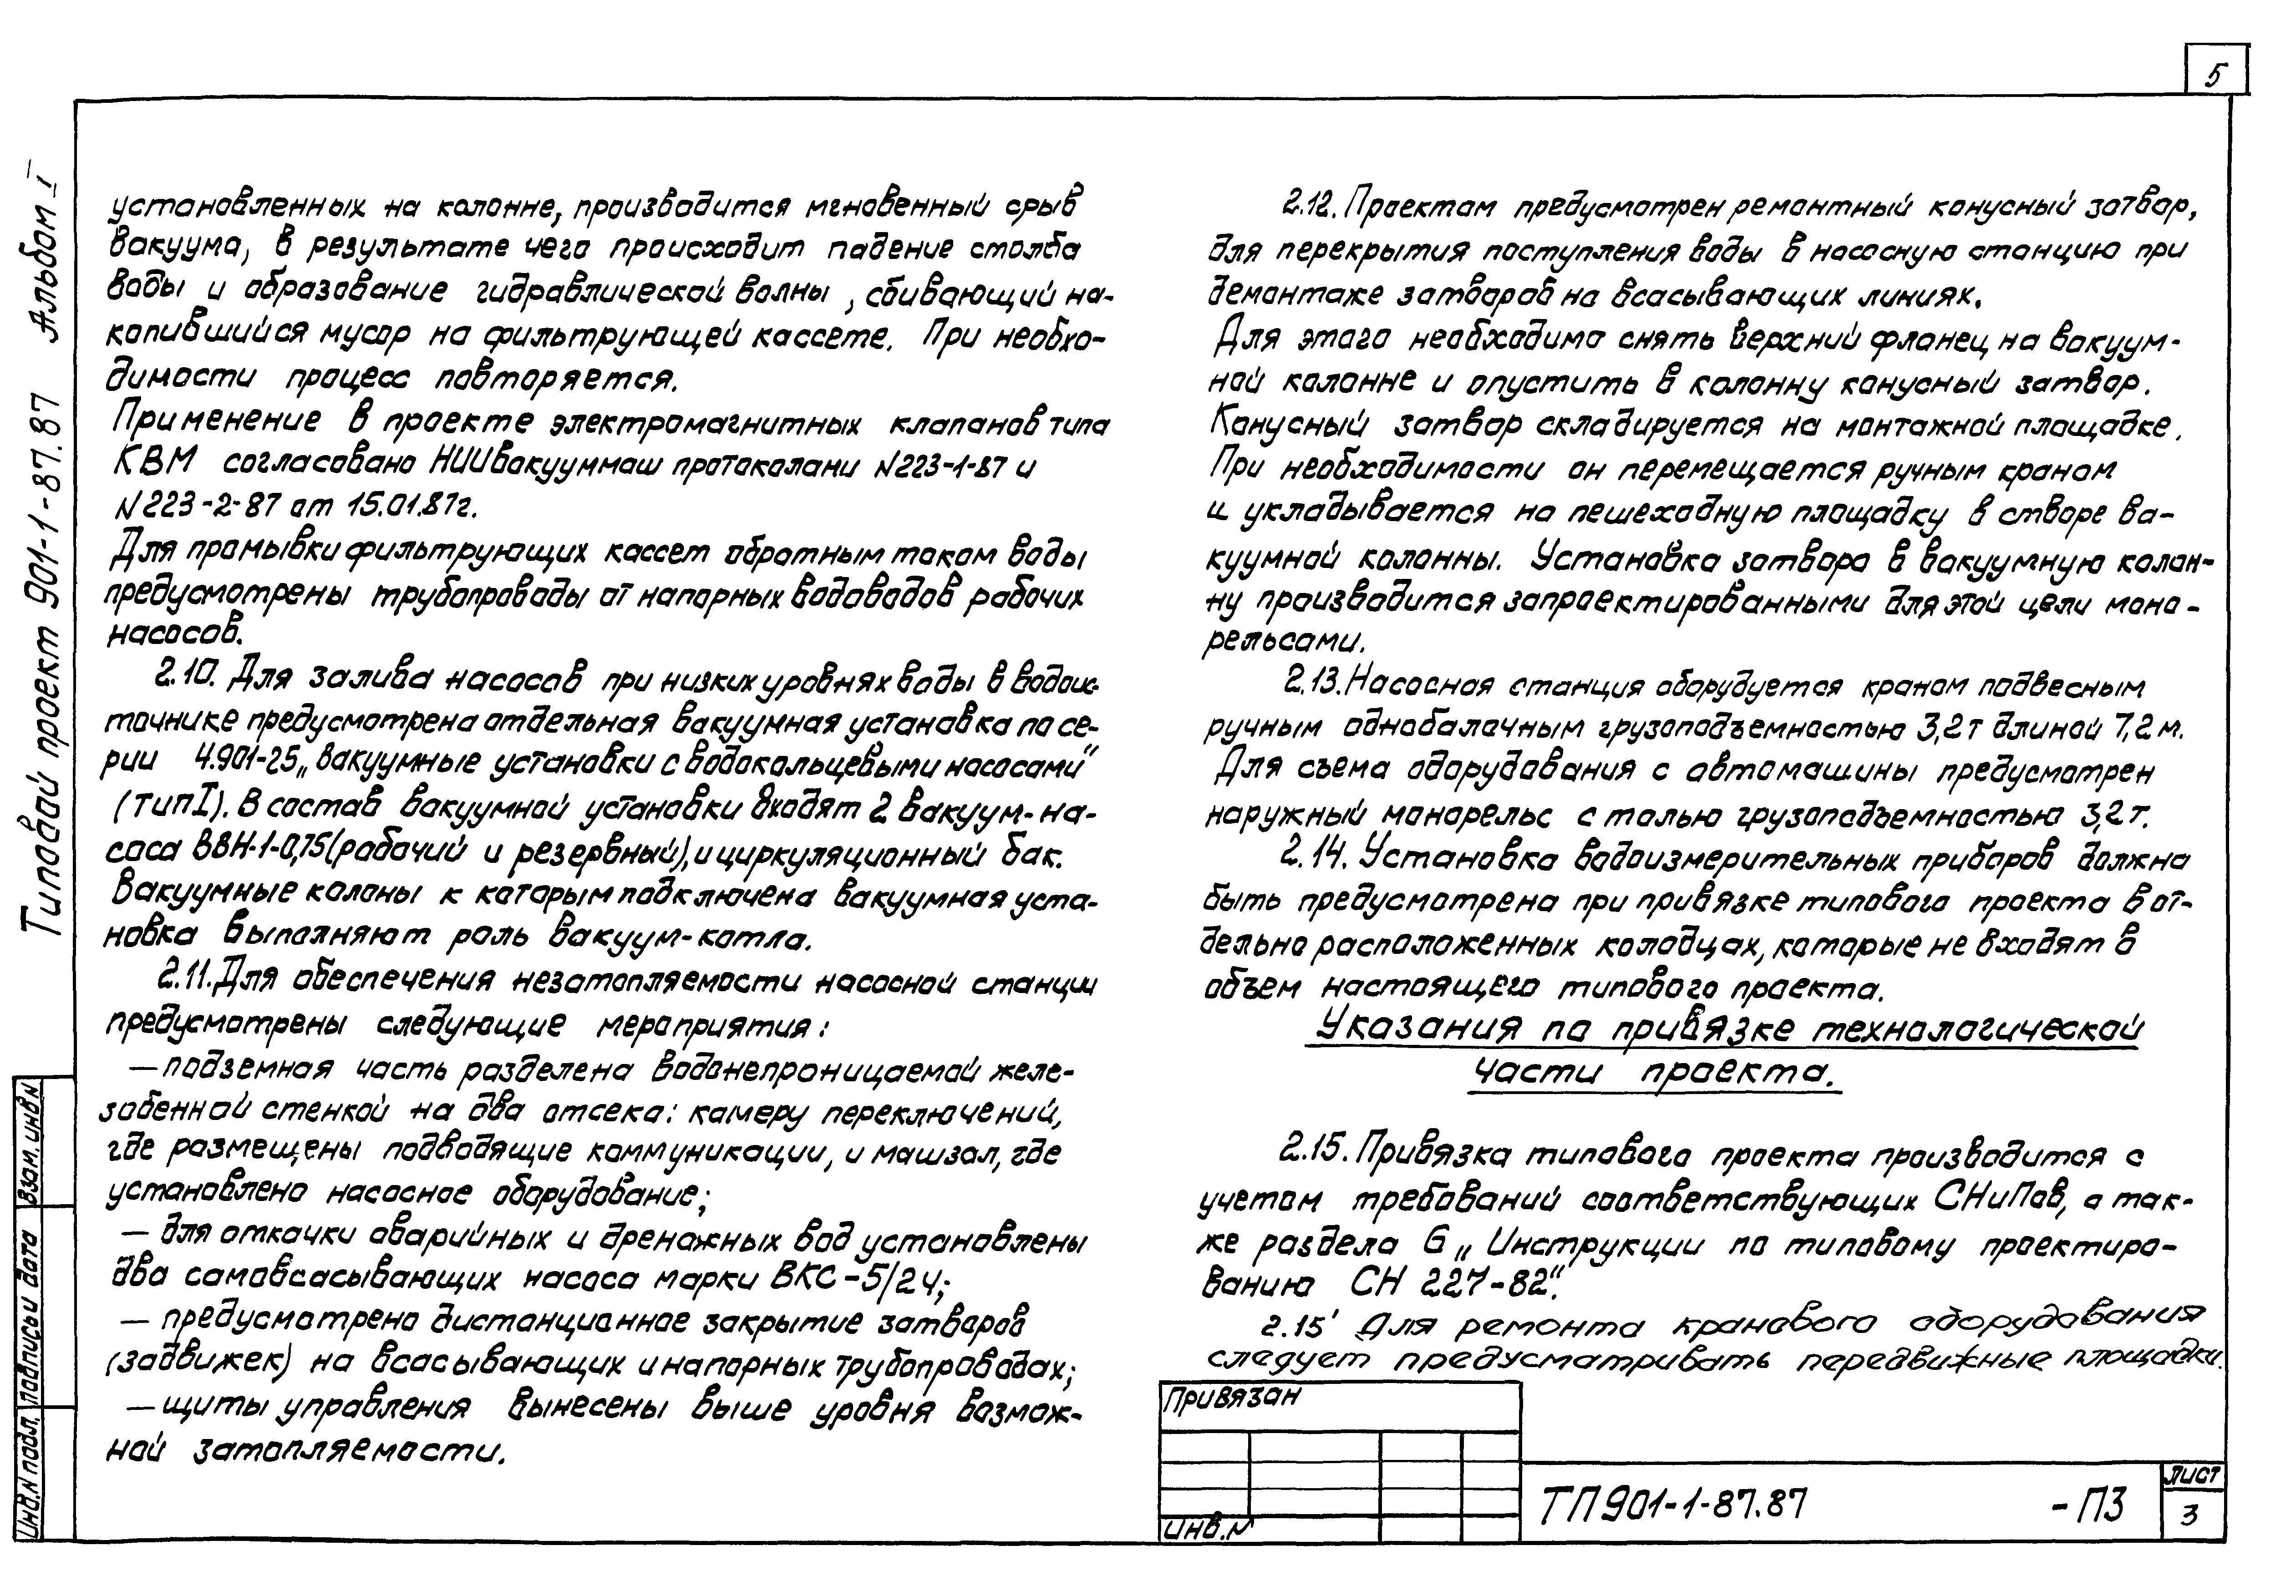 5
Типовой проект 901-1-87.87 Альбом I
установленных на колонне, производится мгновенный срыв
вакуума, в результате чего происходит падение столба
воды и образование гидравлической волны, сбивающий на-
копившийся мусор на фильтрующей кассете. При необхо-
димости процесс повторяется.
Применение в проекте электромагнитных клапанов типа
КВМ согласовано НИИвакууммаш протоколани N223-1-87 и
N223-2-87 от 15.01.87г.
Для промывки фильтрующих кассет обратным током воды
предусмотрены трубопроводы от напорных водоводов рабочих
насосов.
2.10. Для залива насосов при низких уровнях воды в водоис-
точнике предусмотрена отдельная вакуумная установка по се-
рии 4.901-25 „Вакуумные установки с водокольцевыми насосами“
(тип I). В состав вакуумной установки входят 2 вакуум-на-
соса ВВН-1-0,75 (рабочий и резервный), и циркуляционный бак.
Вакуумные колоны к которым подключена вакуумная уста-
новка выполняют роль вакуум-котла.
2.11. Для обеспечения незатопляемости насосной станции
предусмотрены следующие мероприятия:
— подземная часть разделена водонепроницаемой желе-
зобенной стенкой на два отсека: камеру переключений,
где размещены подводящие коммуникации, и машзал, где
установлено насосное оборудование;
— для откачки аварийных и дренажных вод установлены
два самовсасывающих насоса марки ВКС-5/24;
— предусмотрено дистанционное закрытие затворов
(задвижек) на всасывающих и напорных трубопроводах;
— щиты управления вынесены выше уровня возмож-
ной затопляемости.
2.12. Проектом предусмотрен ремонтный конусный затвор,
для перекрытия поступления воды в насосную станцию при
демонтаже затворов на всасывающих линиях.
Для этого необходимо снять верхний фланец на вакуум-
ной колонне и опустить в колонну конусный затвор.
Конусный затвор складируется на монтажной площадке.
При необходимости он перемещается ручным краном
и укладывается на пешеходную площадку в створе ва-
куумной колонны. Установка затвора в вакуумную колон-
ну производится запроектированными для этой цели моно-
рельсами.
2.13. Насосная станция оборудуется краном подвесным
ручным однобалочным грузоподъемностью 3,2 т длиной 7,2 м.
Для съема одорудования с автомашины предусмотрен
наружный монорельс с талью грузоподъемностью 3,2 т.
2.14. Установка водоизмерительных приборов должна
быть предусмотрена при привязке типового проекта в от-
дельно расположенных колодцах, которые не входят в
объем настоящего типового проекта.
Указания по привязке технологической
части проекта.
2.15. Привязка типового проекта производится с
учетом требований соответствующих СНиПов, а так-
же раздела 6 „Инструкции по типовому проектиро-
ванию СН 227-82“.
2.15' Для ремонта кранового оборудования
следует предусматривать передвижные площадки.
Привязан
Инв.N
ТП 901-1-87.87 -ПЗ
Лист
3
Инв.N подл. Подпись и дата Взам. инв N